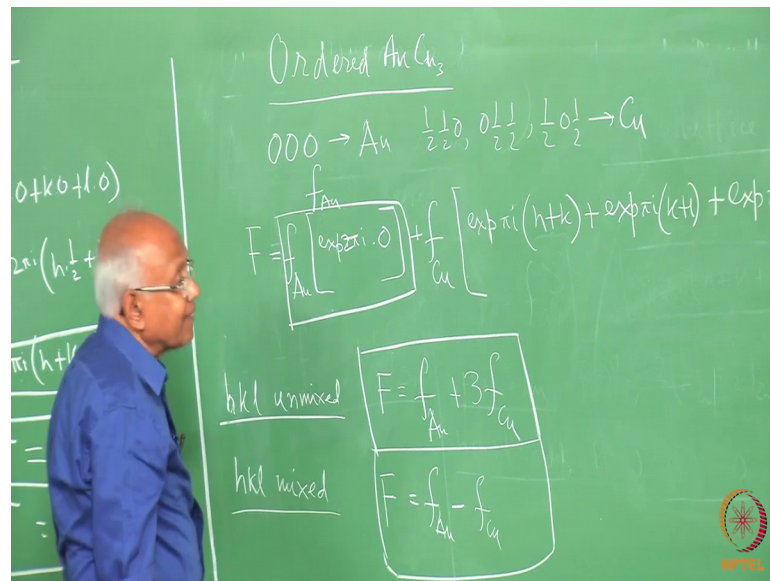 Ordered AuCu₃
000 → Au ½½0, 0½½, ½0½ → Cu
f_Au
F = f_Au [exp2πi.0] + f_Cu [expπi(h+k) + expπi(k+l) + exp
hkl unmixed F = f_Au + 3f_Cu
hkl mixed F = f_Au - f_Cu
0+k0+l.0)
2πi(h.½+
πi(h+k
=
=
NPTEL